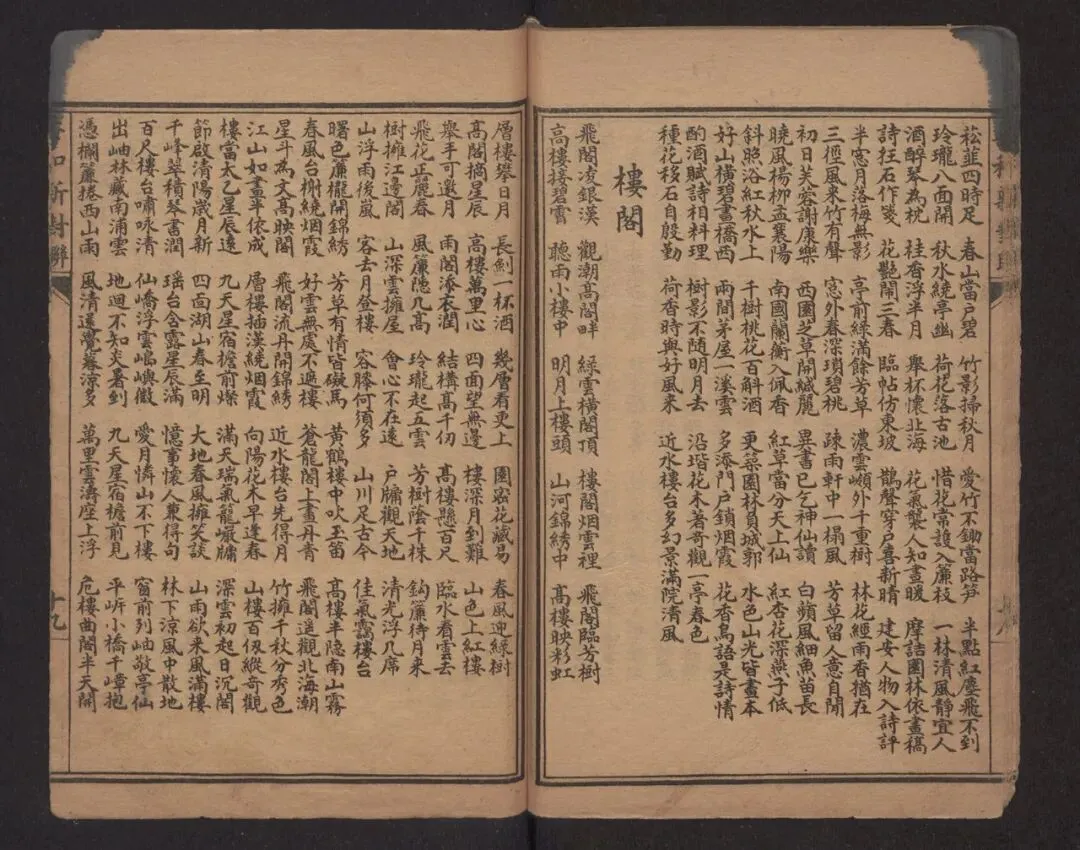 菘韮四時足 春山當戶碧 竹影掃秋月 愛竹不鋤當路笋 半點紅塵飛不到
玲瓏八面開 秋水繞亭幽 荷花落古池 惜花常護入簾枝 一林清風靜宜人
酒醉琴為枕 桂香浮半月 舉杯懷北海 花氣襲人知晝暖 摩詰園林依畫稿
詩狂石作箋 花艷鬧三春 臨帖仿東坡 鵲聲穿戶喜新晴 建安人物入詩評
半窓月落梅無影 亭前綠滿餘芳草 濃雲嶺外千重樹 林花經雨香猶在
三徑風來竹有聲 窓外春深瑣碧桃 疎雨軒中一榻風 芳草留人意自閒
初日芙蓉謝康樂 西園芝草開緘麗 異書已乞神仙讀 白蘋風細魚苗長
曉風楊柳孟襄陽 南國蘭蘅入佩香 紅草當分天上仙 紅杏花深燕子低
斜照浴紅秋水上 千樹桃花百斛酒 更築園林負城郭 水色山光皆畫本
好山橫碧畫橋西 兩間茅屋一溪雲 多添門戶鎖烟霞 花香鳥語是詩情
酌酒賦詩相料理 樹影不隨明月去 沿堦花木著奇觀一亭春色
種花移石自殷勤 荷香時與好風來 近水樓台多幻景滿院清風
樓閣
飛閣凌銀漢 觀潮高閣畔 綠雲橫閣頂 樓閣烟雲裡 飛閣臨芳樹
高樓接碧霄 聽雨小樓中 明月上樓頭 山河錦綉中 高樓映彩虹
層樓攀日月 長劍一杯酒 幾層看更上 園密花藏易 春風迎綠樹
高閣摘星辰 高樓萬里心 四面望無邊 樓深月到難 山色上紅樓
舉手可邀月 雨閣添衣潤 結構高千仞 高樓懸百尺 臨水看雲去
飛花正麗春 風簾隱几高 玲瓏起五雲 芳樹蔭千株 鈎簾待月來
樹擁江邊閣 山深雲擁屋 會心不在遠 戶牖觀天地 清光浮几席
山浮雨後嵐 客去月登樓 容膝何須多 山川足古今 佳氣靄樓台
曙色簾櫳開錦綉 芳草有情皆礙馬 黃鶴樓中吹玉笛 高樓半隱南山霧
春風台榭繞烟霞 好雲無處不遮樓 蒼龍閣上畫丹青 飛閣遥觀北海潮
星斗為文高映閣 飛閣流丹開錦綉 近水樓台先得月 竹擁千秋分秀色
江山如畫平依成 層樓插漢繞烟霞 向陽花木早逢春 山樓百仭縱奇觀
樓當太乙星辰遠 九天星宿檐前燦 滿天瑞氣籠巗牖 深雲初起日沉閣
節啟清陽歲月新 四面湖山春至明 大地春風擁笑談 山雨欲来風滿樓
千峰翠積琴書潤 瑶台含露星辰滿 憶事懷人兼得句 林下凉風中散地
百尺樓台嘯咏清 仙嶠浮雲島嶼微 愛月憐山不下樓 窗前列岫敬亭仙
出岫林藏南浦雲 地迴不知炎暑到 九天星宿檐前見 平岍小橋千嶂抱
憑欄簾捲西山雨 風清還覺薜涼多 萬里雲濤座上浮 危樓曲閣半天開
和新對聯
十九